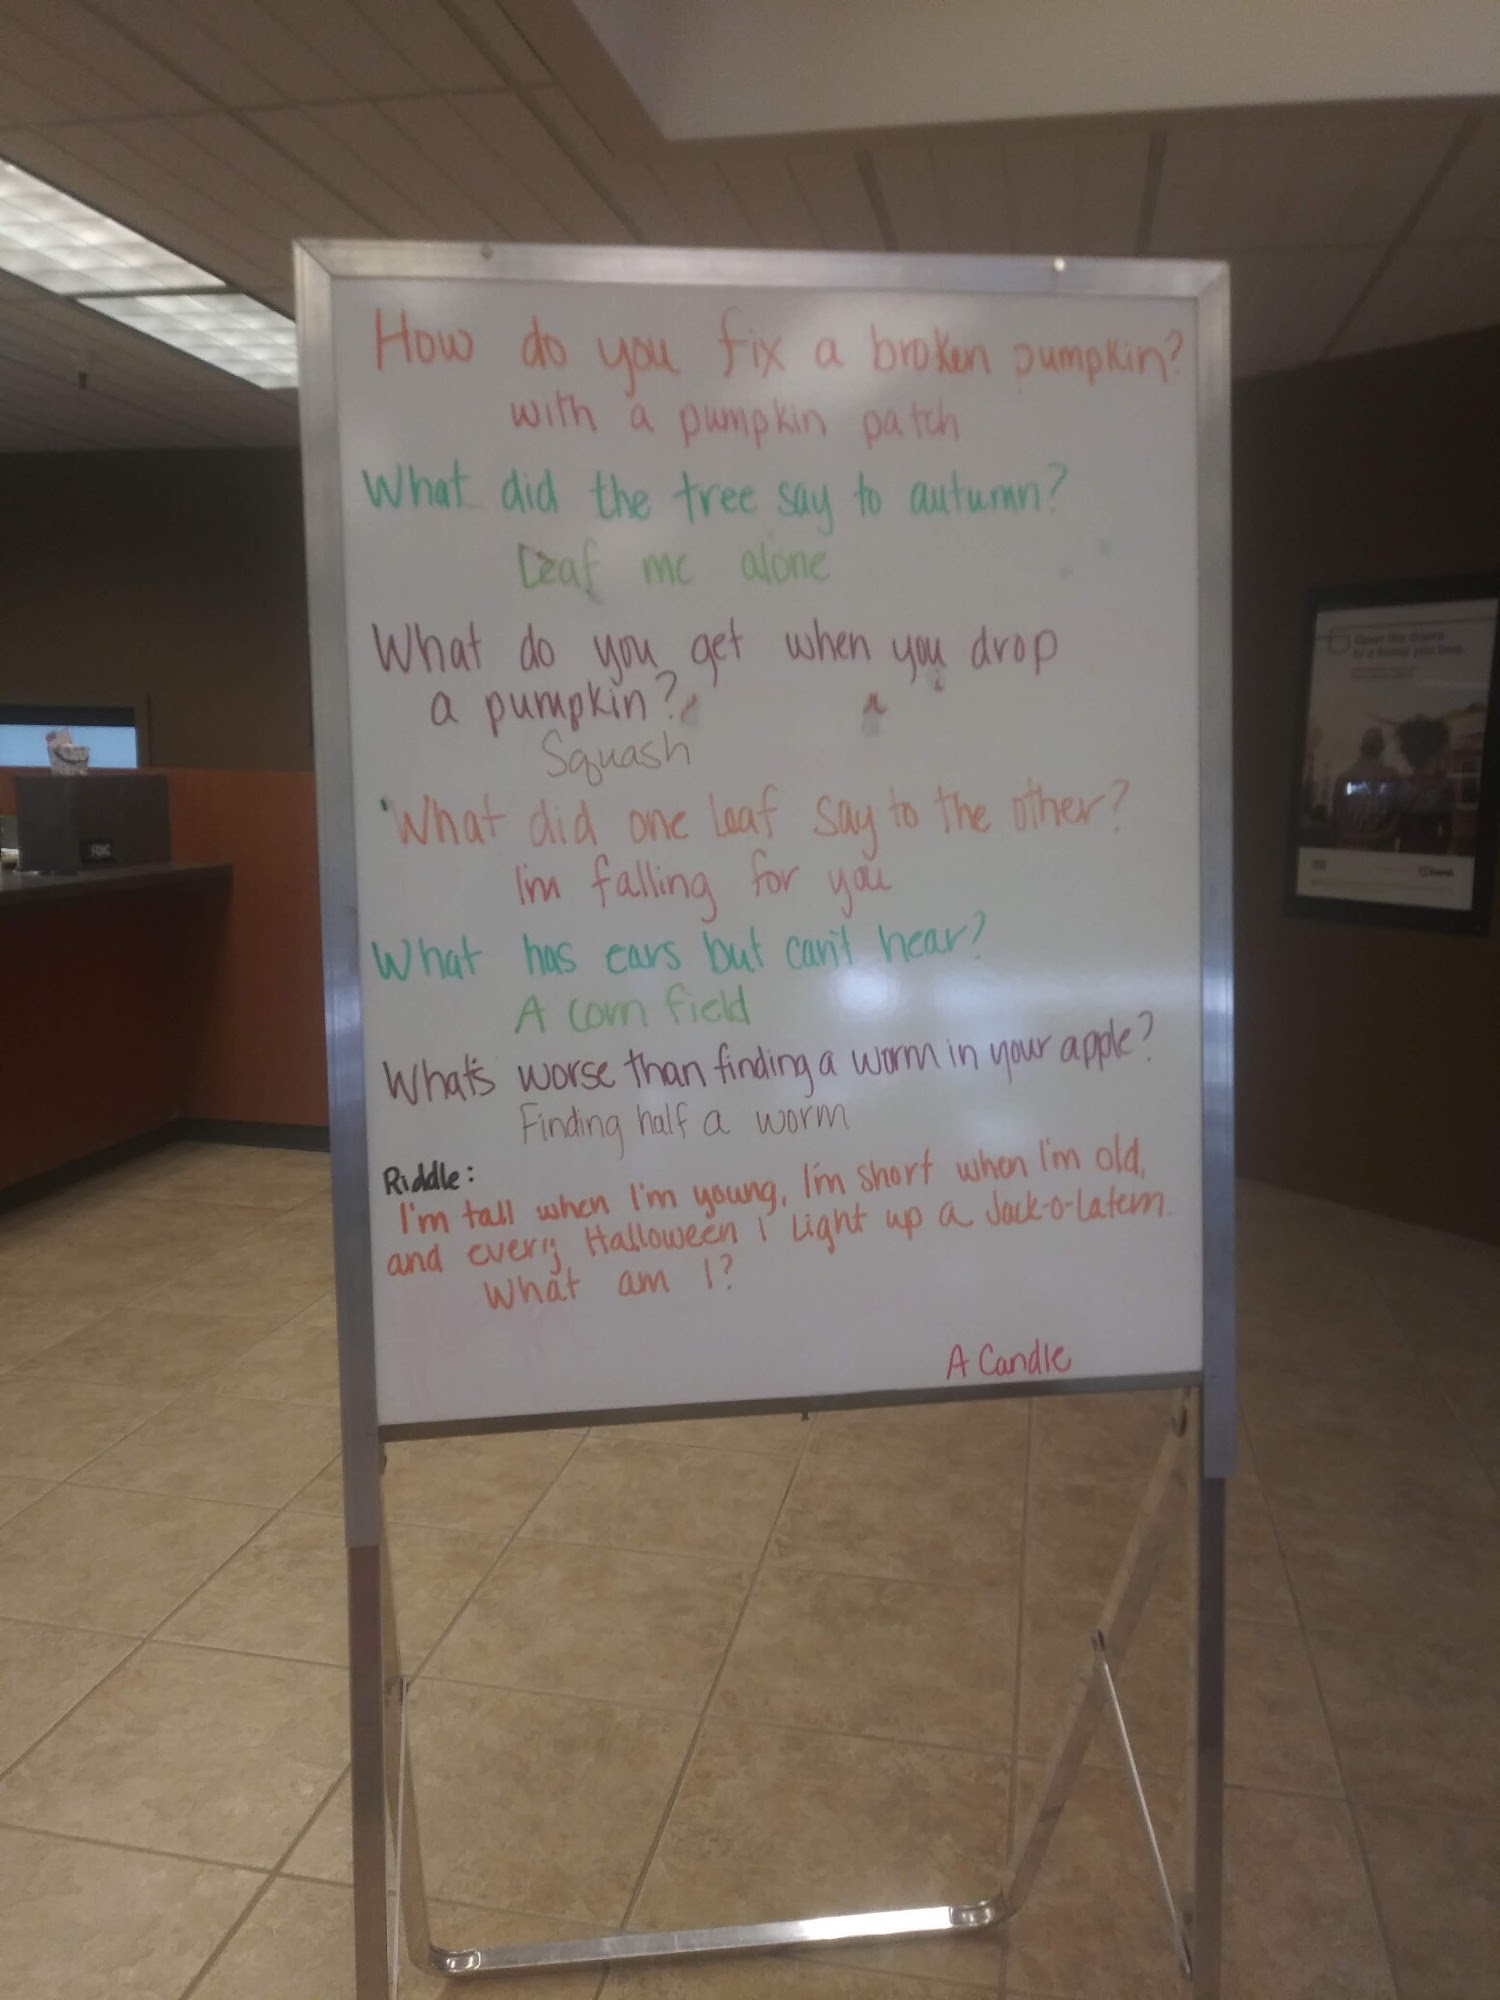 How do you fix a broken pumpkin?
with a pumpkin patch
What did the tree say to autumn?
Leaf me alone
What do you get when you drop
a pumpkin?
Squash
What did one leaf say to the other?
I'm falling for you
What has ears but can't hear?
A corn field
What's worse than finding a worm in your apple?
Finding half a worm
Riddle:
I'm tall when I'm young, I'm short when I'm old,
and every Halloween I light up a Jack-o-Latern.
What am I?
A Candle
FDIC